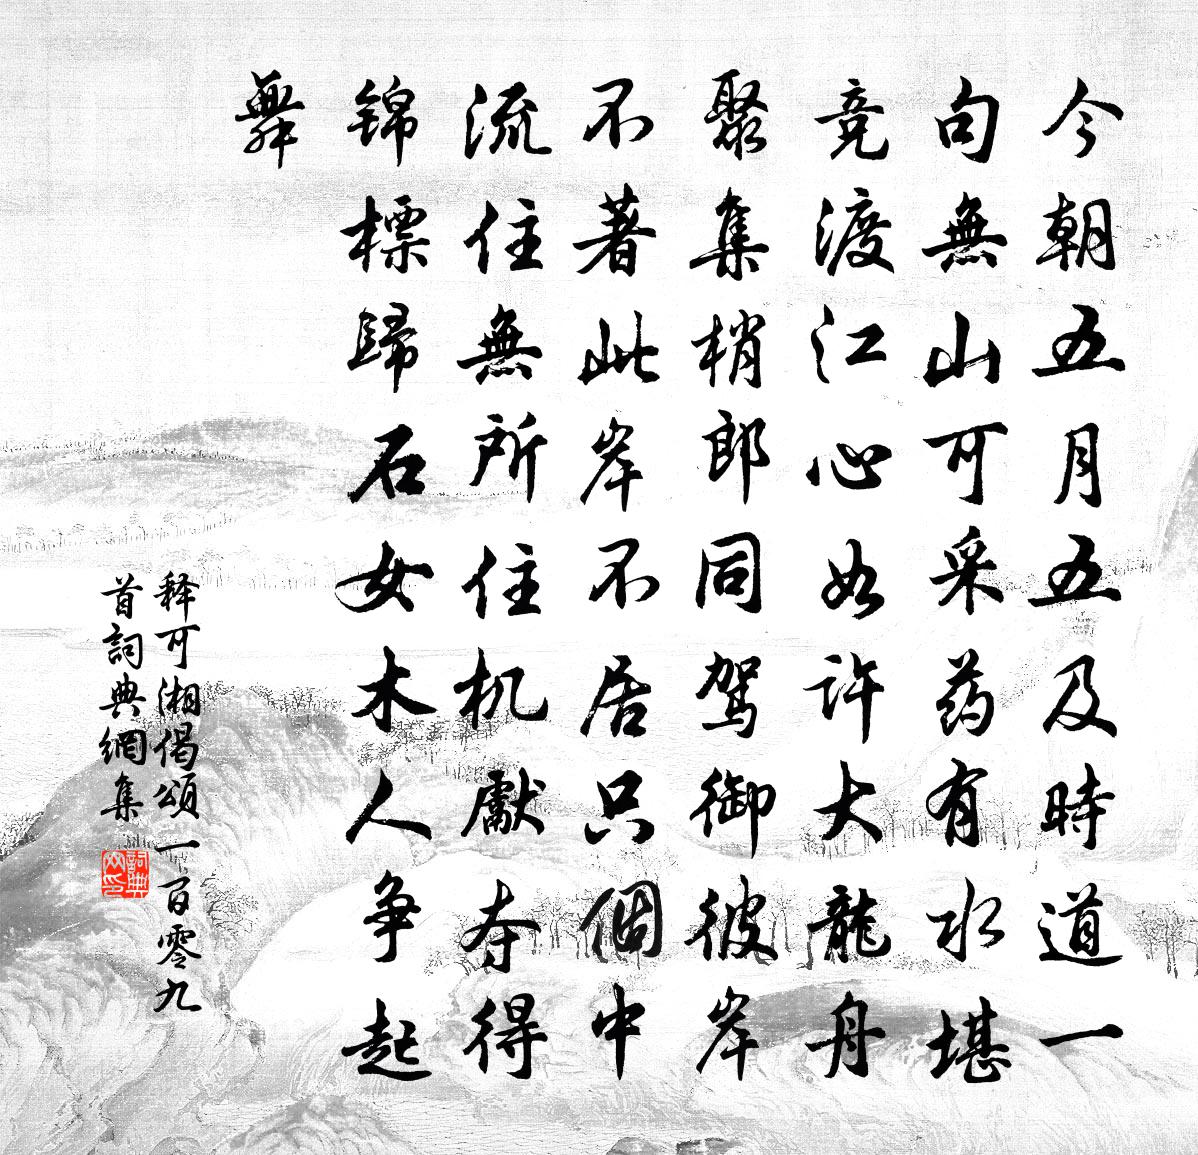 今朝五月五及時道一
句無山可采药有水堪
竞渡江心如許大龍舟
聚集梢郎同駕御彼岸
不著此岸不居只個中
流住無所住机獻夺得
锦標歸石女木人争起
舞
释可湘偈頌一百零九
首詞典網集
詞典网印